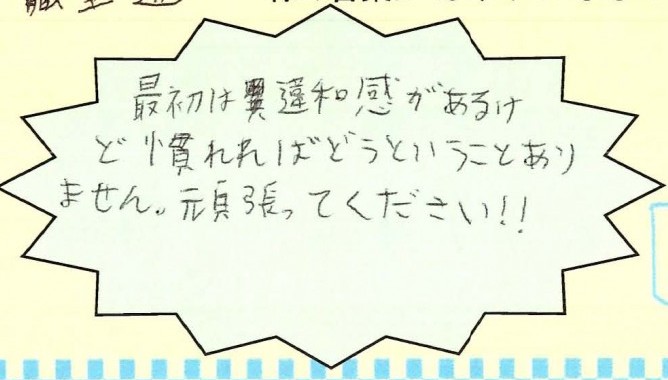 最初は異違和感があるけ
ど慣れればどうということあり
ません。頑張ってください!!